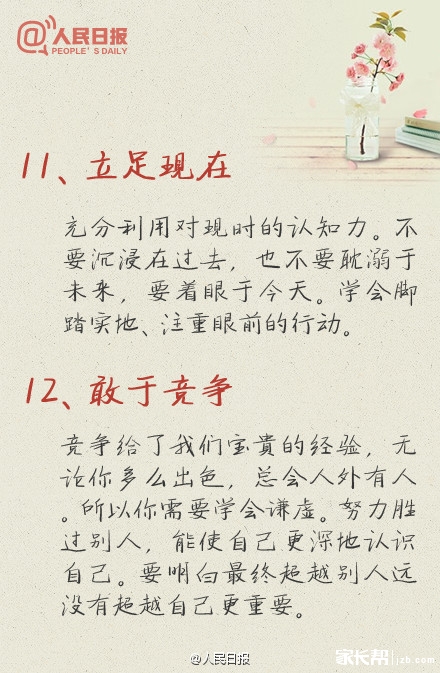 @人民日报
PEOPLE'S DAILY
11、立足现在
充分利用对现时的认知力。不
要沉浸在过去，也不要耽溺于
未来，要着眼于今天。学会脚
踏实地、注重眼前的行动。
12、敢于竞争
竞争给了我们宝贵的经验，无
论你多么出色，总会人外有人
。所以你需要学会谦虚。努力胜
过别人，能使自己更深地认识
自己。要明白最终超越别人远
没有超越自己更重要。
@人民日报
家长帮 jzb.com